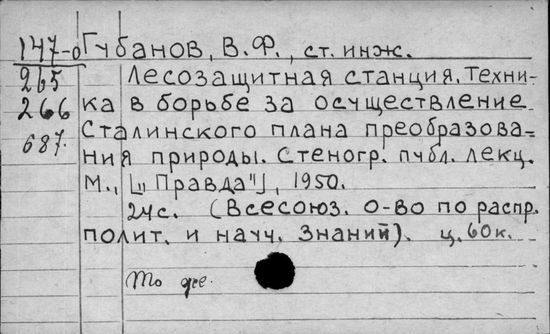 147-о Губанов, В.Ф., ст. инж.
265 Лесозащитная станция. Техни-
266 ка в борьбе за осуществление
687. Сталинского плана преобразова-
ния природы. Стеногр. публ. лекц.
М., [„Правда"], 1950.
24с. (Всесоюз. о-во по распр.
полит. и науч. знаний). ц. 60к.
То же.